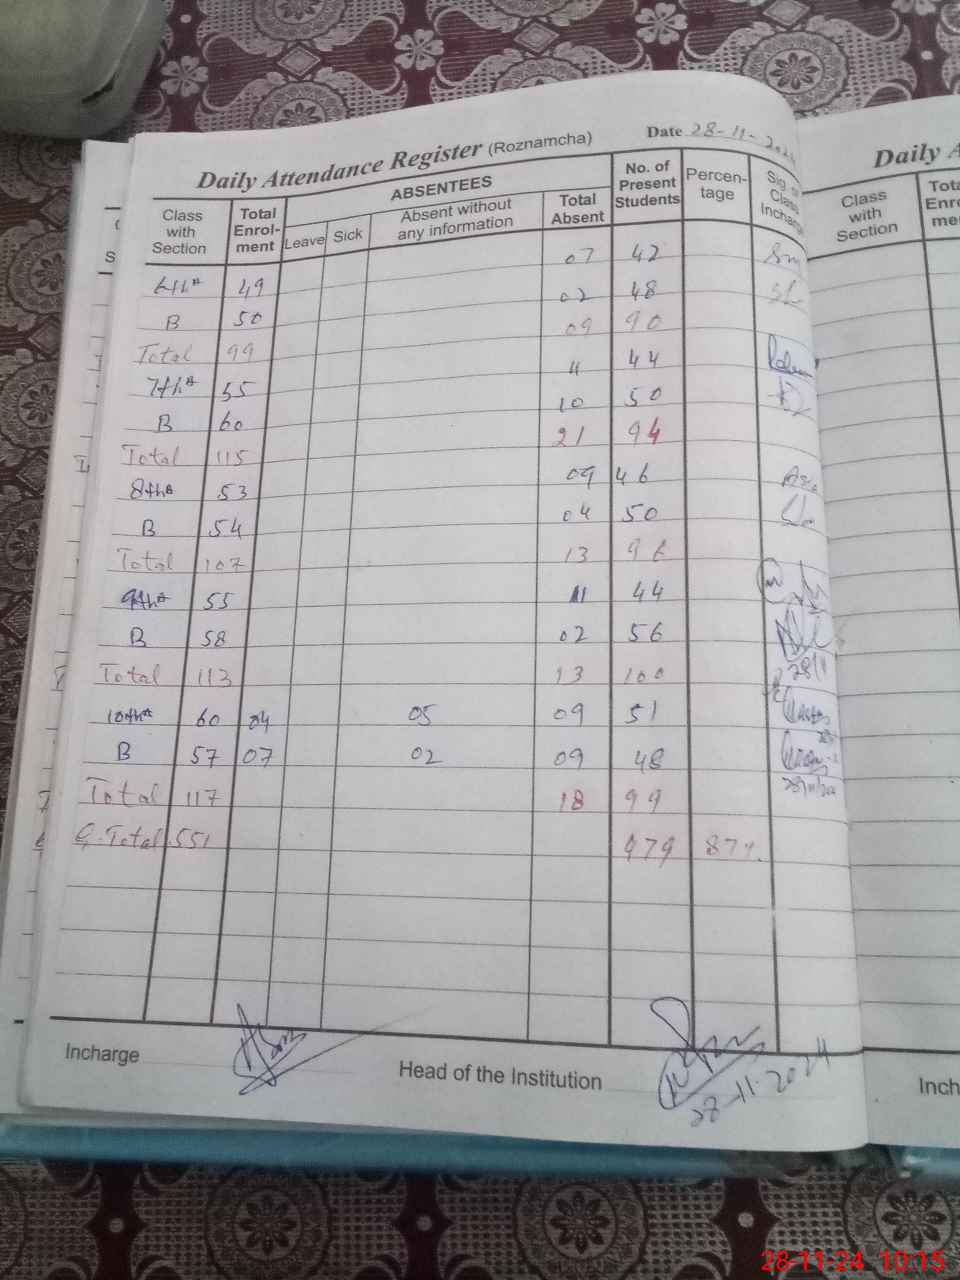 Daily Attendance Register (Roznamcha) Date 28-11-2024
Class with Section Total Enrol-ment ABSENTEES Leave Sick Absent without any information Total Absent No. of Present Students Percen-tage Sig. of Class Incharge
6th A 49 07 42
B 50 02 48
Total 99 09 90
7th A 55 11 44
B 60 10 50
Total 115 21 94
8th A 53 09 46
B 54 04 50
Total 107 13 96
9th A 55 11 44
B 58 02 56
Total 113 13 100
28/11
10th A 60 04 05 09 51
B 57 07 02 09 48
Total 117 18 99
G.Total 551 479 87%
Incharge Head of the Institution
28-11-2024
Daily A
Class with Section
Tota
Enro
me
Inch
28-11-24 10:15